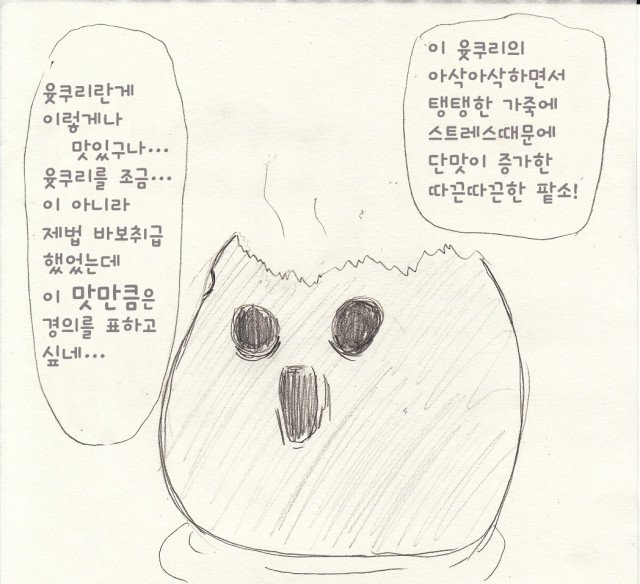 이 윳쿠리의
아삭아삭하면서
탱탱한 가죽에
스트레스때문에
단맛이 증가한
따끈따끈한 팥소!
윳쿠리란게
이렇게나
맛있구나…
윳쿠리를 조금…
이 아니라
제법 바보취급
했었는데
이 맛만큼은
경의를 표하고
싶네…